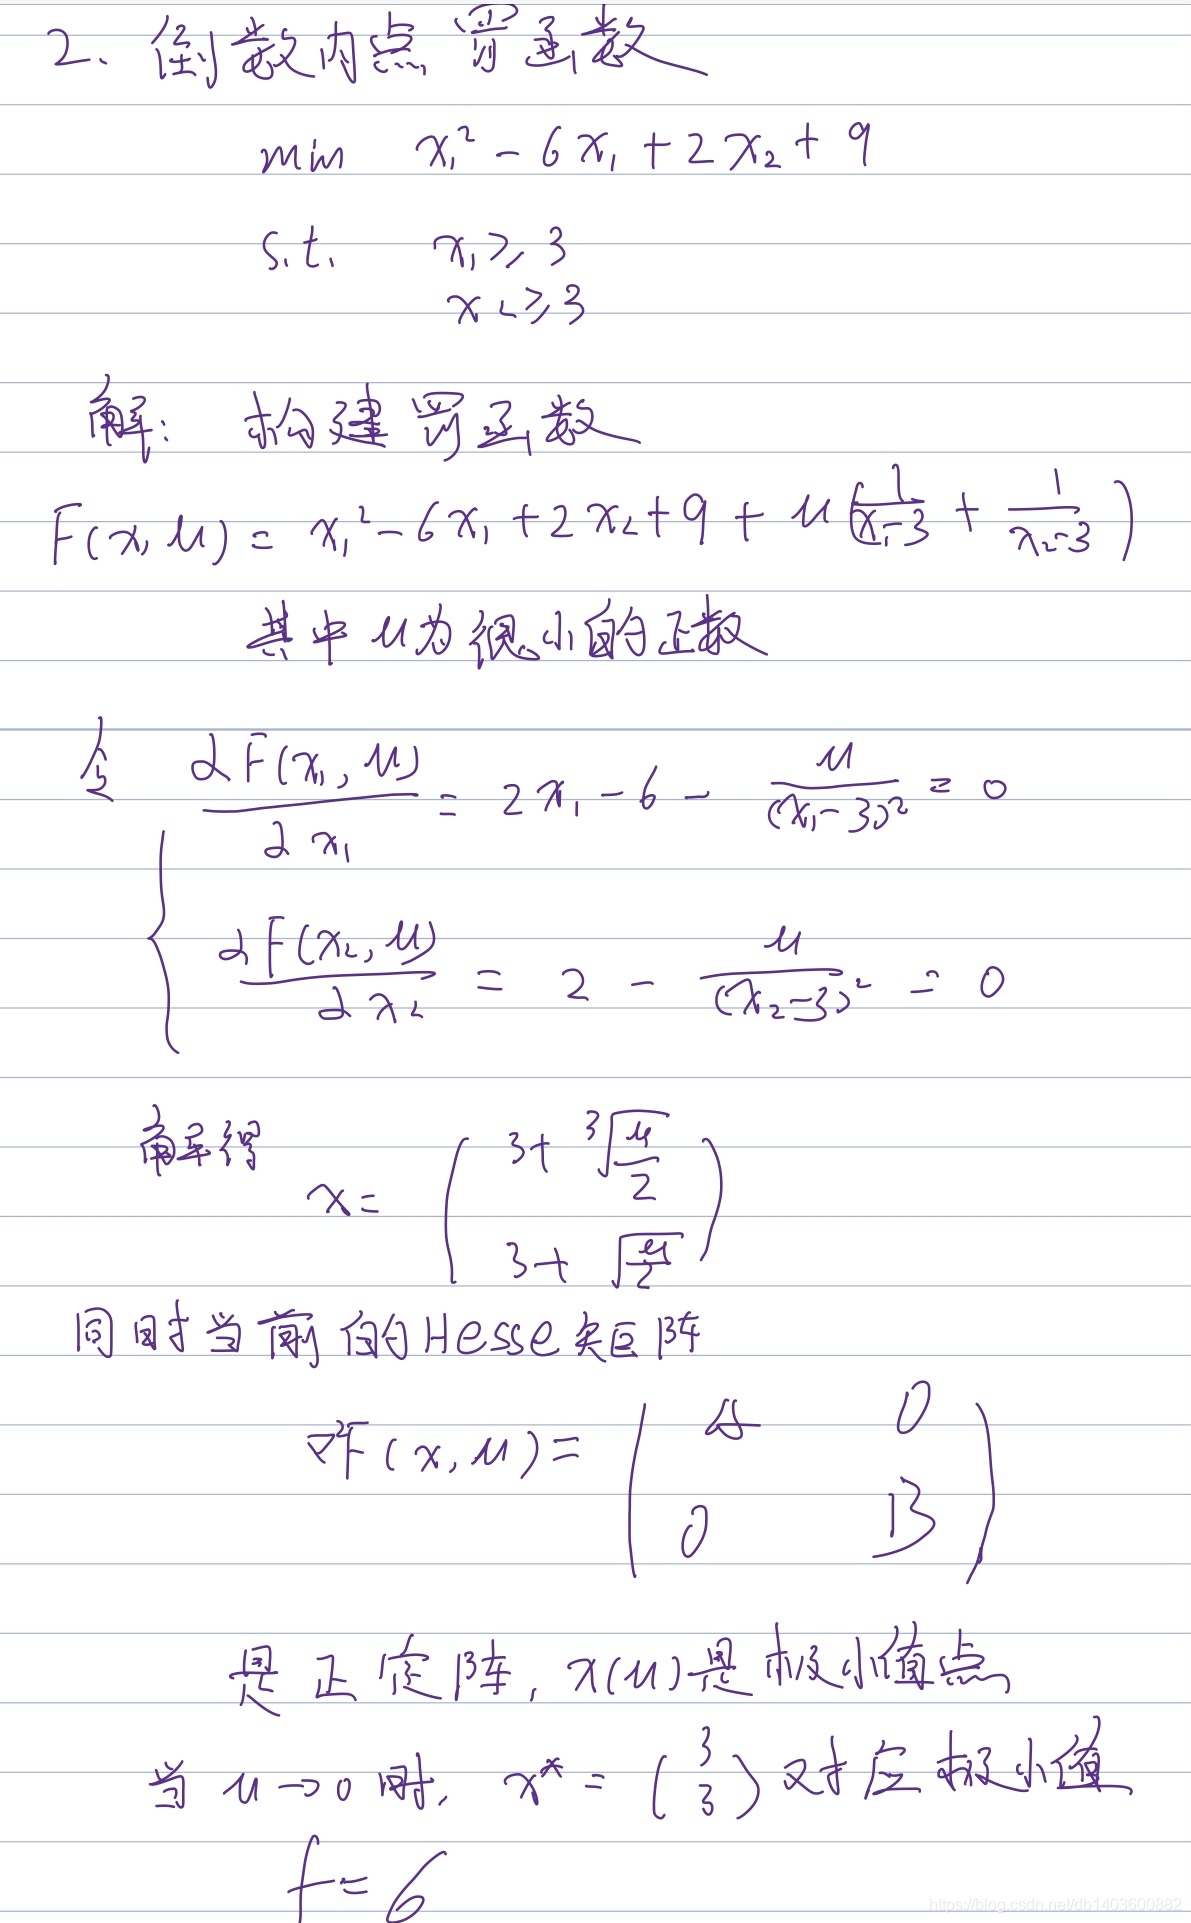 2. 倒数内点罚函数
min x₁² - 6x₁ + 2x₂ + 9
s.t. x₁ ≥ 3
x₂ ≥ 3
解: 构建罚函数
F(x, μ) = x₁² - 6x₁ + 2x₂ + 9 + μ(1/(x₁-3) + 1/(x₂-3))
其中 μ为很小的正数
令 { ∂F(x₁, μ)/∂x₁ = 2x₁ - 6 - μ/(x₁-3)² = 0
∂F(x₂, μ)/∂x₂ = 2 - μ/(x₂-3)² = 0
解得
x = ( 3+ ³√(μ/2)
3+ √(μ/2) )
同时当前的Hesse矩阵
∇²F(x, μ) = ( A 0
0 B )
是正定阵, x(μ)是极小值点
当 μ→0时, x* = (3 3) 对应极小值
f = 6
https://blog.csdn.net/db1403600882